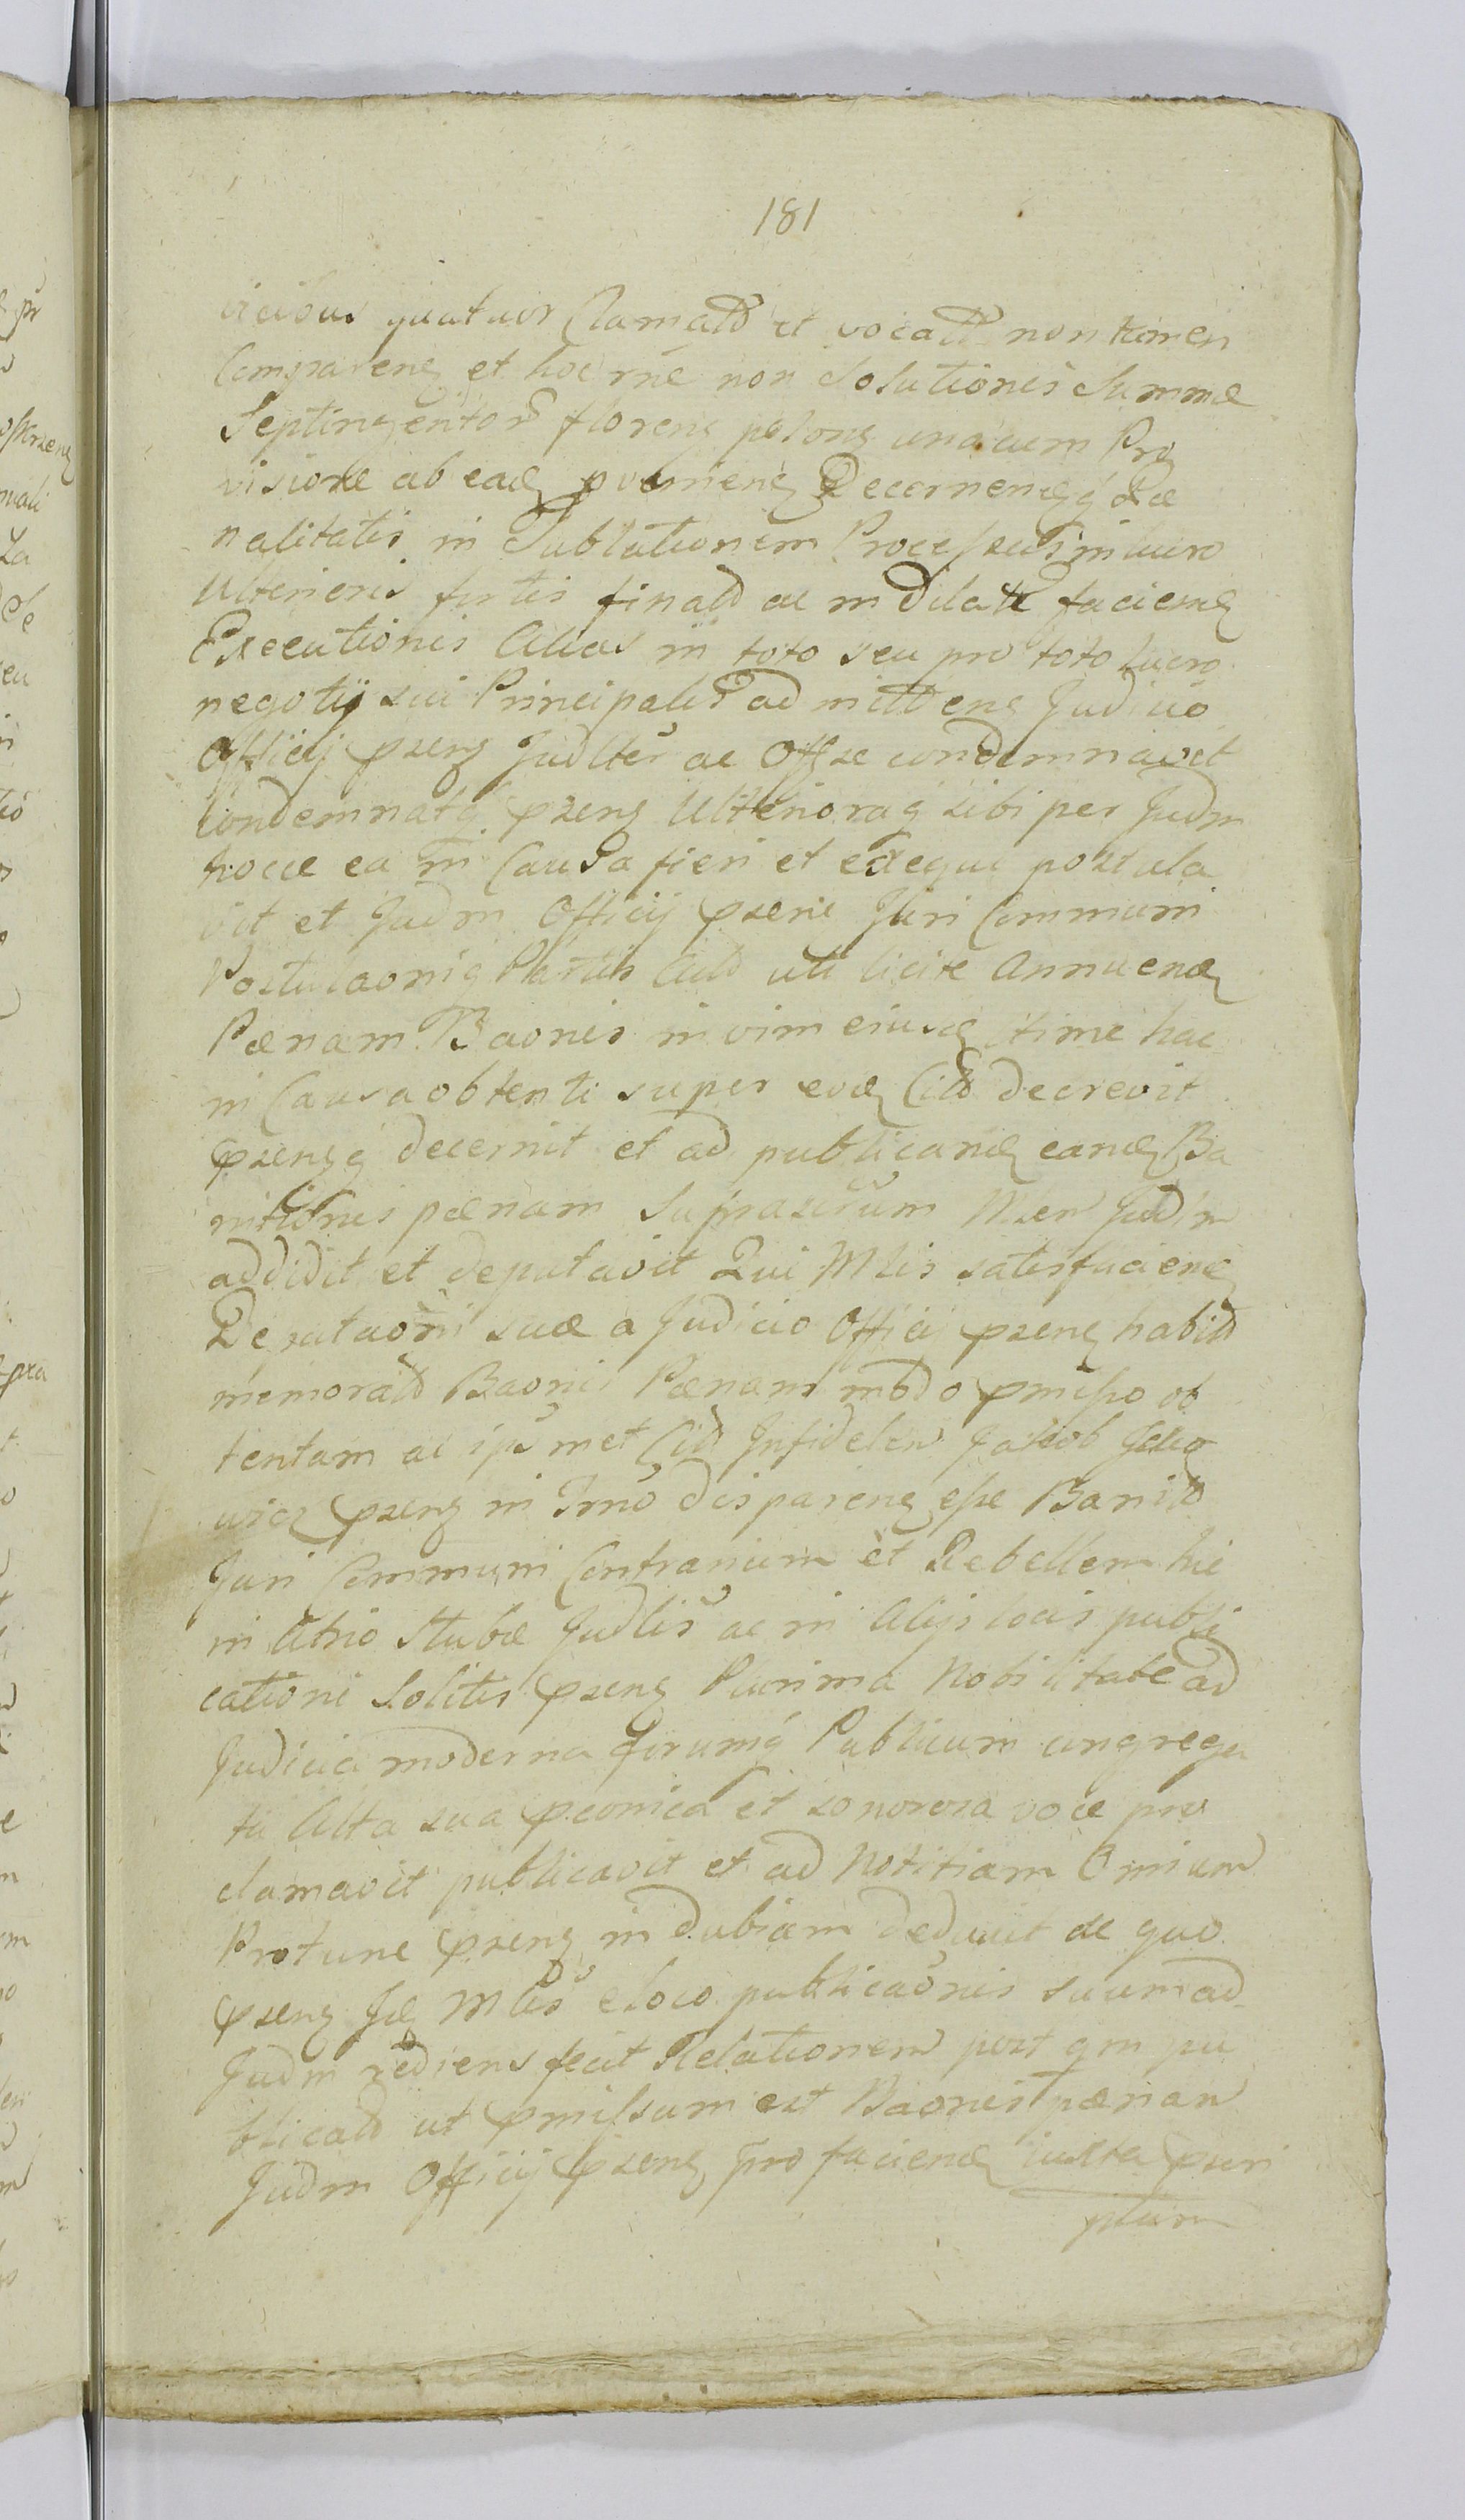 181
vicibus quatuor Clamat et vocat non tamen
Comparenẽ et hoc rne non Solutionis Summæ
Septingentor florenõ polonõ unacum Pro
visione ab eadẽ pvenienẽ Decernenẽq Pæ
nalitatis in Sublationem Processus in lucro
Ulterioris fortis finald ac indilate facienẽ
Executionis Alias in toto seu pro toto lucro
negotij sui Principalis admittens Judicio
Officij psenẽ Judlter ac Offse condemnavit
Condemnatq psens Ulterioraq sibi per Judm
hocce ea in Causa fieri et exequi postula
vit et Judm Officij psens Juri Communi
Postulaonĩq Partis Act uti licite Annuenẽ
Pænam Baonis in vim eiusdẽ time hac
in Causa obtenti super eodẽ Citt decrevit
psensq decernit et ad publicanẽ eandẽ Ba
nitionis pænam Suprascrum Mren Judm
addidit et deputavit Qui Mlis satisfacienẽ
Deputaoni suæ a Judicio Officij psenẽ habit
memorat Baonis Pænam modo pmisso ob
tentam ac ipsmet Citt Infidelen Jakob Jcko
wicz psenẽ in Trno disparenẽ esse Banit
Juri Communi Contrarium et Rebellem hic
in Atrio Stubæ Judlis ac in Alijs locis publi
cationi Solitis psenẽ Plurima Nobilitate ad
Judicia moderna forumq Publicum congrega
ta Alta sua pconica et sonorosa voce pro
clamavit publicavit et ad Notitiam Omium
Protunc psenẽ indubiam deduxit de quo
psenẽ Idẽ Mlis e loco publicaonis suum ad
Judm rediens fecit Relationem post qm pu
blicatt ut pmissum est Baonis pænam
Judm Officij psenẽ pro facienẽ iuxta pscri
ptum